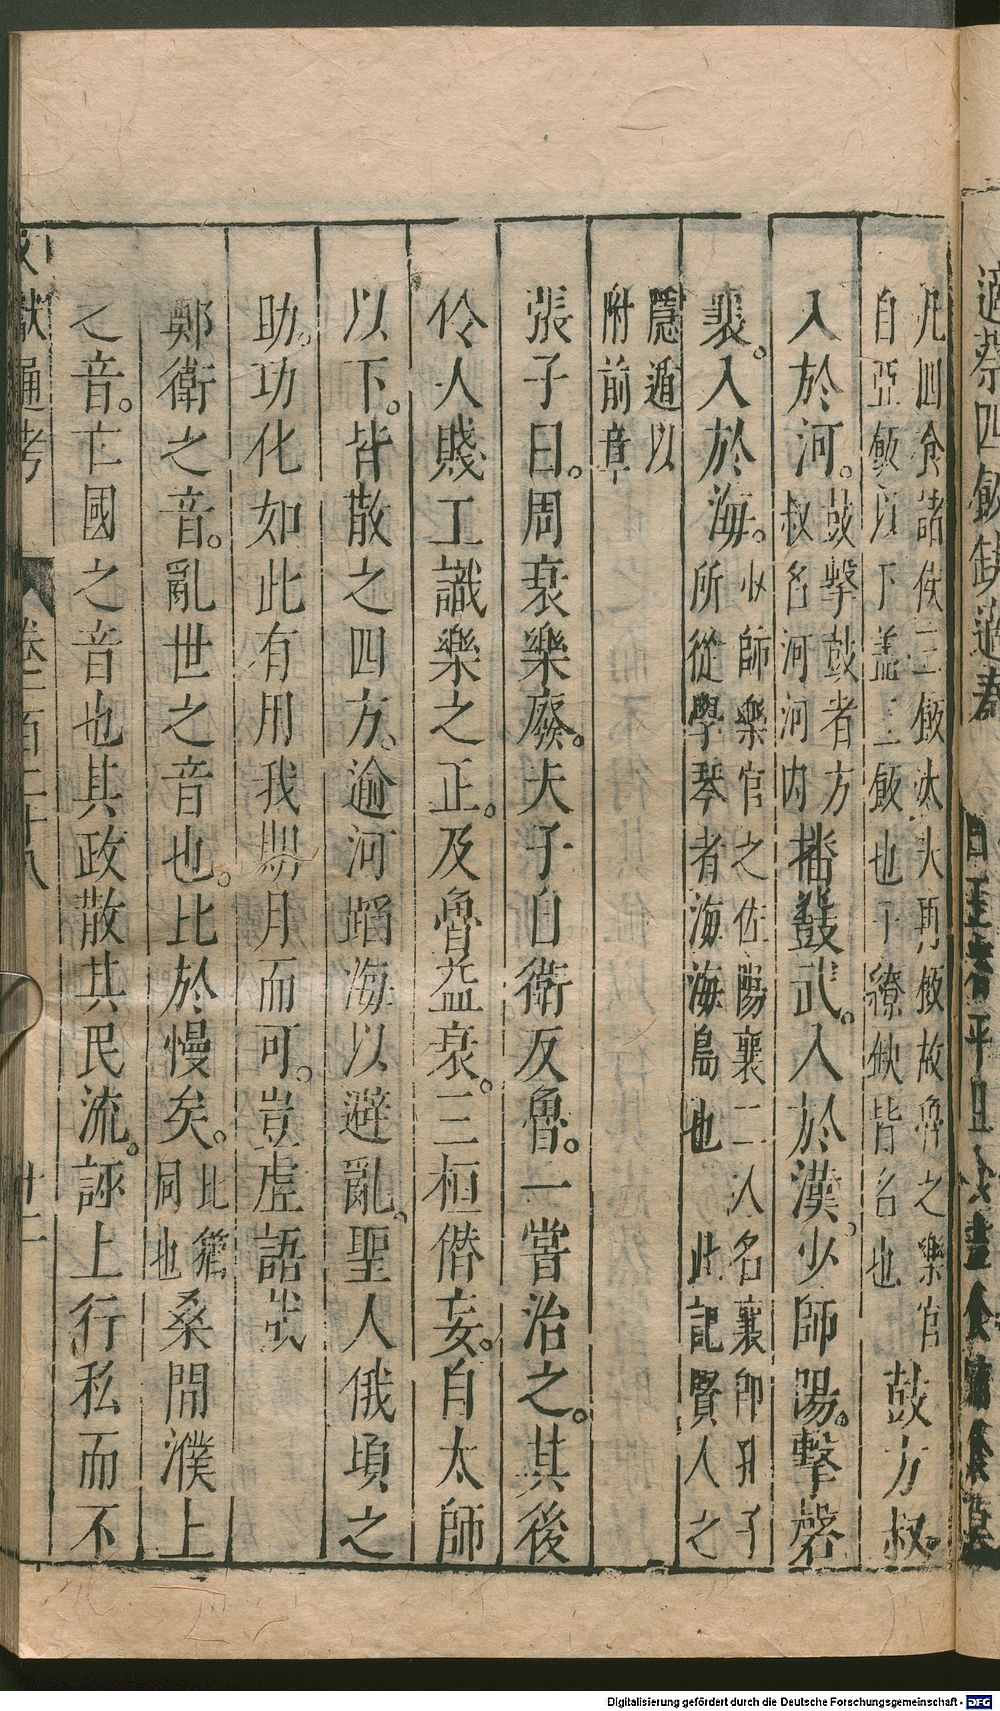 適蔡四飯缺適秦
凡四食諸侯三飯大夫再飯故魯之樂官
自亞飯以下蓋三飯也干繚缺皆名也
鼓方叔。
入於河。
鼓擊鼓者方
叔名河河内
播鼗武。入於漢。少師陽。擊磬
襄。入於海。
少師樂官之佐陽襄二人名襄即孔子
所從學琴者海海島也 此記賢人之
隱遁以
附前章
張子曰。周衰樂廢。夫子自衛反魯。一嘗治之。其後
伶人賤工識樂之正。及魯益衰。三桓僭妄。自太師
以下。皆散之四方。逾河蹈海以避亂。聖人俄頃之
助。功化如此有用我期月而可。豈虛語哉
鄭衛之音。亂世之音也。比於慢矣。
比猶
同也
桑間濮上
之音。亡國之音也其政散其民流。誣上行私而不
文獻通考 卷一百二十八 廿二
Digitalisierung gefördert durch die Deutsche Forschungsgemeinschaft - DFG